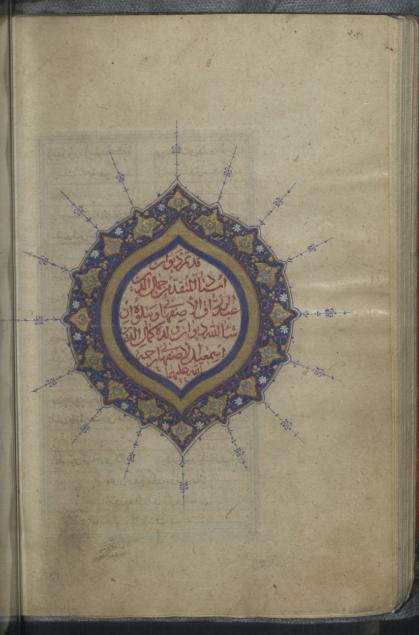 قد تم دیوان
استاد المتقدمین جمال الدین
عبد الرزاق الاصفهانی ویتلوه ان
شا الله دیوان ولده کمال الدین
اسمعیل الاصفهانی رحمة
الله علیهما